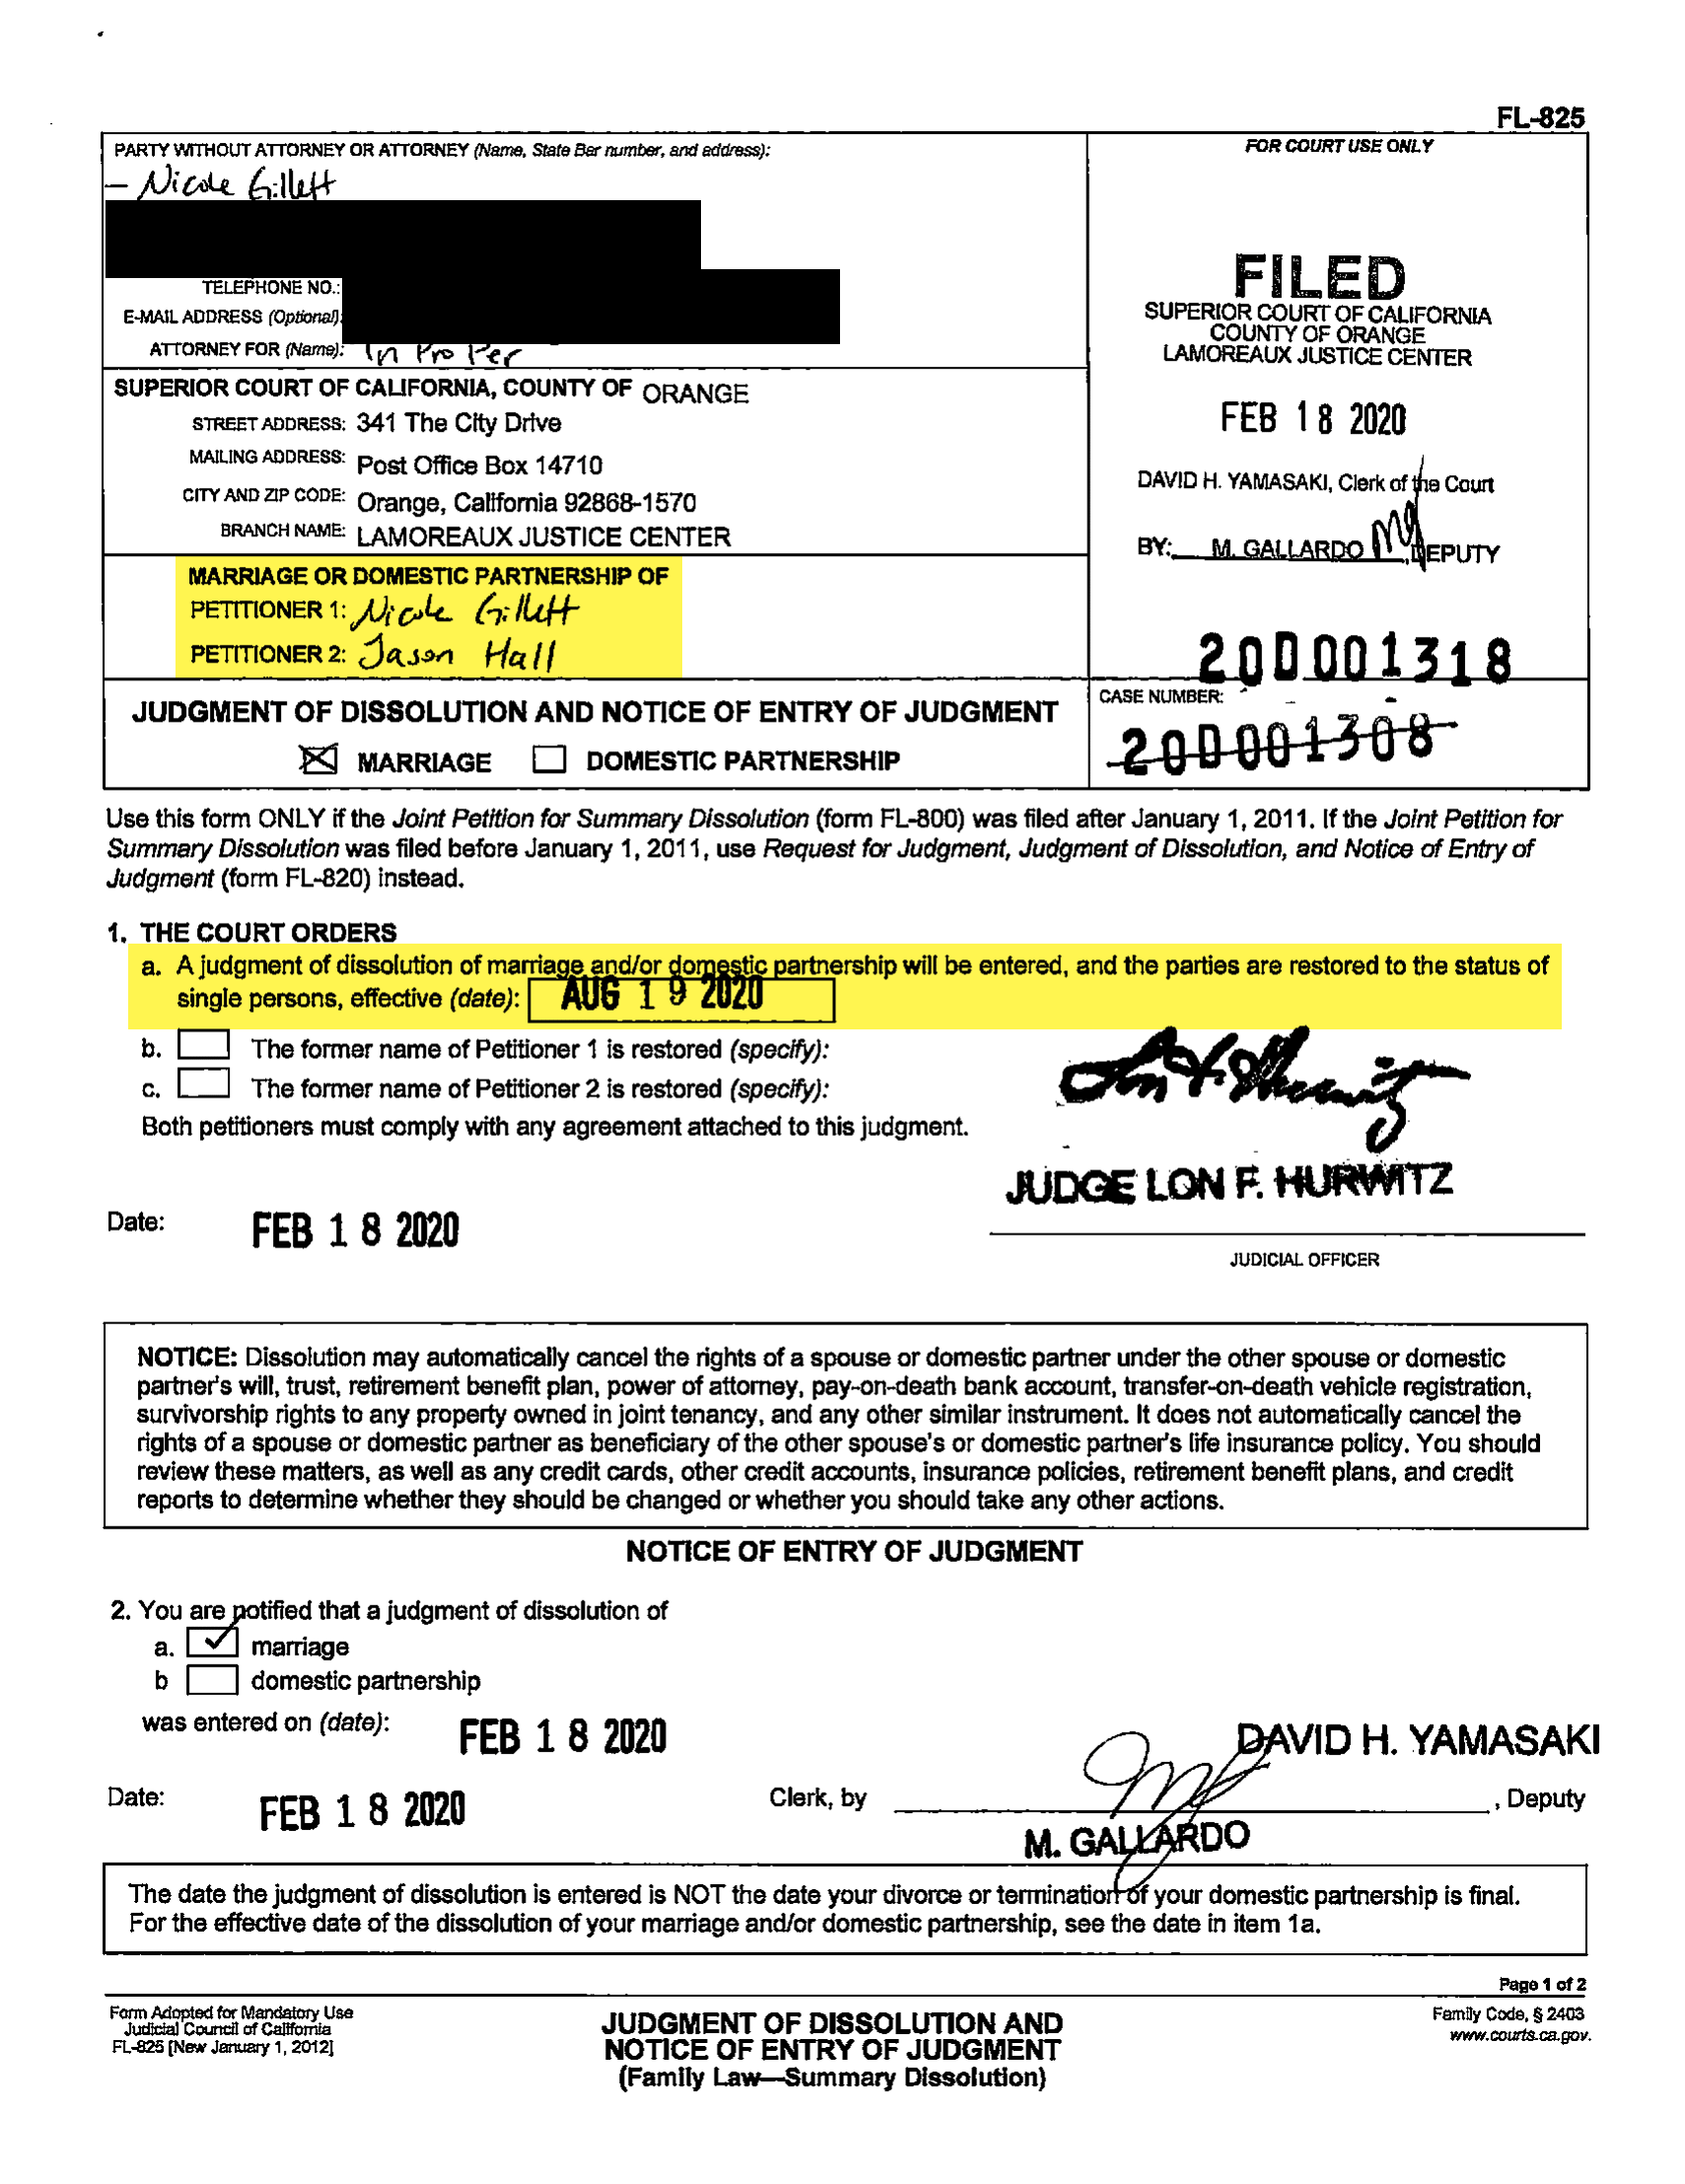 FL-825
PARTY WITHOUT ATTORNEY OR ATTORNEY (Name, State Bar number, and address):
– Nicole Gillett
TELEPHONE NO.:
E-MAIL ADDRESS (Optional):
ATTORNEY FOR (Name): In Pro Per
SUPERIOR COURT OF CALIFORNIA, COUNTY OF ORANGE
STREET ADDRESS: 341 The City Drive
MAILING ADDRESS: Post Office Box 14710
CITY AND ZIP CODE: Orange, California 92868-1570
BRANCH NAME: LAMOREAUX JUSTICE CENTER
MARRIAGE OR DOMESTIC PARTNERSHIP OF
PETITIONER 1: Nicole Gillett
PETITIONER 2: Jason Hall
JUDGMENT OF DISSOLUTION AND NOTICE OF ENTRY OF JUDGMENT
MARRIAGE DOMESTIC PARTNERSHIP
FOR COURT USE ONLY
FILED
SUPERIOR COURT OF CALIFORNIA
COUNTY OF ORANGE
LAMOREAUX JUSTICE CENTER
FEB 18 2020
DAVID H. YAMASAKI, Clerk of the Court
BY: M. GALLARDO MG ,DEPUTY
20D001318
CASE NUMBER:
20D001308
Use this form ONLY if the Joint Petition for Summary Dissolution (form FL-800) was filed after January 1, 2011. If the Joint Petition for
Summary Dissolution was filed before January 1, 2011, use Request for Judgment, Judgment of Dissolution, and Notice of Entry of
Judgment (form FL-820) instead.
1. THE COURT ORDERS
a. A judgment of dissolution of marriage and/or domestic partnership will be entered, and the parties are restored to the status of
single persons, effective (date): AUG 19 2020
b. The former name of Petitioner 1 is restored (specify):
c. The former name of Petitioner 2 is restored (specify):
Both petitioners must comply with any agreement attached to this judgment.
JUDGE LON F. HURWITZ
Date: FEB 18 2020
JUDICIAL OFFICER
NOTICE: Dissolution may automatically cancel the rights of a spouse or domestic partner under the other spouse or domestic
partner's will, trust, retirement benefit plan, power of attorney, pay-on-death bank account, transfer-on-death vehicle registration,
survivorship rights to any property owned in joint tenancy, and any other similar instrument. It does not automatically cancel the
rights of a spouse or domestic partner as beneficiary of the other spouse's or domestic partner's life insurance policy. You should
review these matters, as well as any credit cards, other credit accounts, insurance policies, retirement benefit plans, and credit
reports to determine whether they should be changed or whether you should take any other actions.
NOTICE OF ENTRY OF JUDGMENT
2. You are notified that a judgment of dissolution of
a. marriage
b domestic partnership
was entered on (date): FEB 18 2020
DAVID H. YAMASAKI
Date: FEB 18 2020 Clerk, by , Deputy
M. GALLARDO
The date the judgment of dissolution is entered is NOT the date your divorce or termination of your domestic partnership is final.
For the effective date of the dissolution of your marriage and/or domestic partnership, see the date in item 1a.
Page 1 of 2
Form Adopted for Mandatory Use
Judicial Council of California
FL-825 [New January 1, 2012]
JUDGMENT OF DISSOLUTION AND
NOTICE OF ENTRY OF JUDGMENT
(Family Law—Summary Dissolution)
Family Code, § 2403
www.courts.ca.gov.